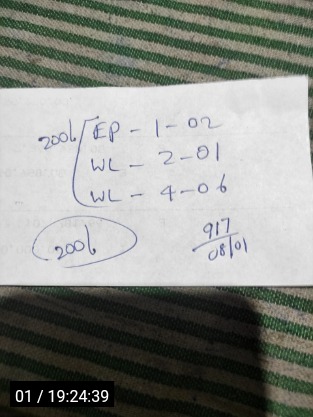 2006 EP - 1 - 02
WL - 2 - 01
WL - 4 - 06
2006
917
08/01
01 / 19:24:39